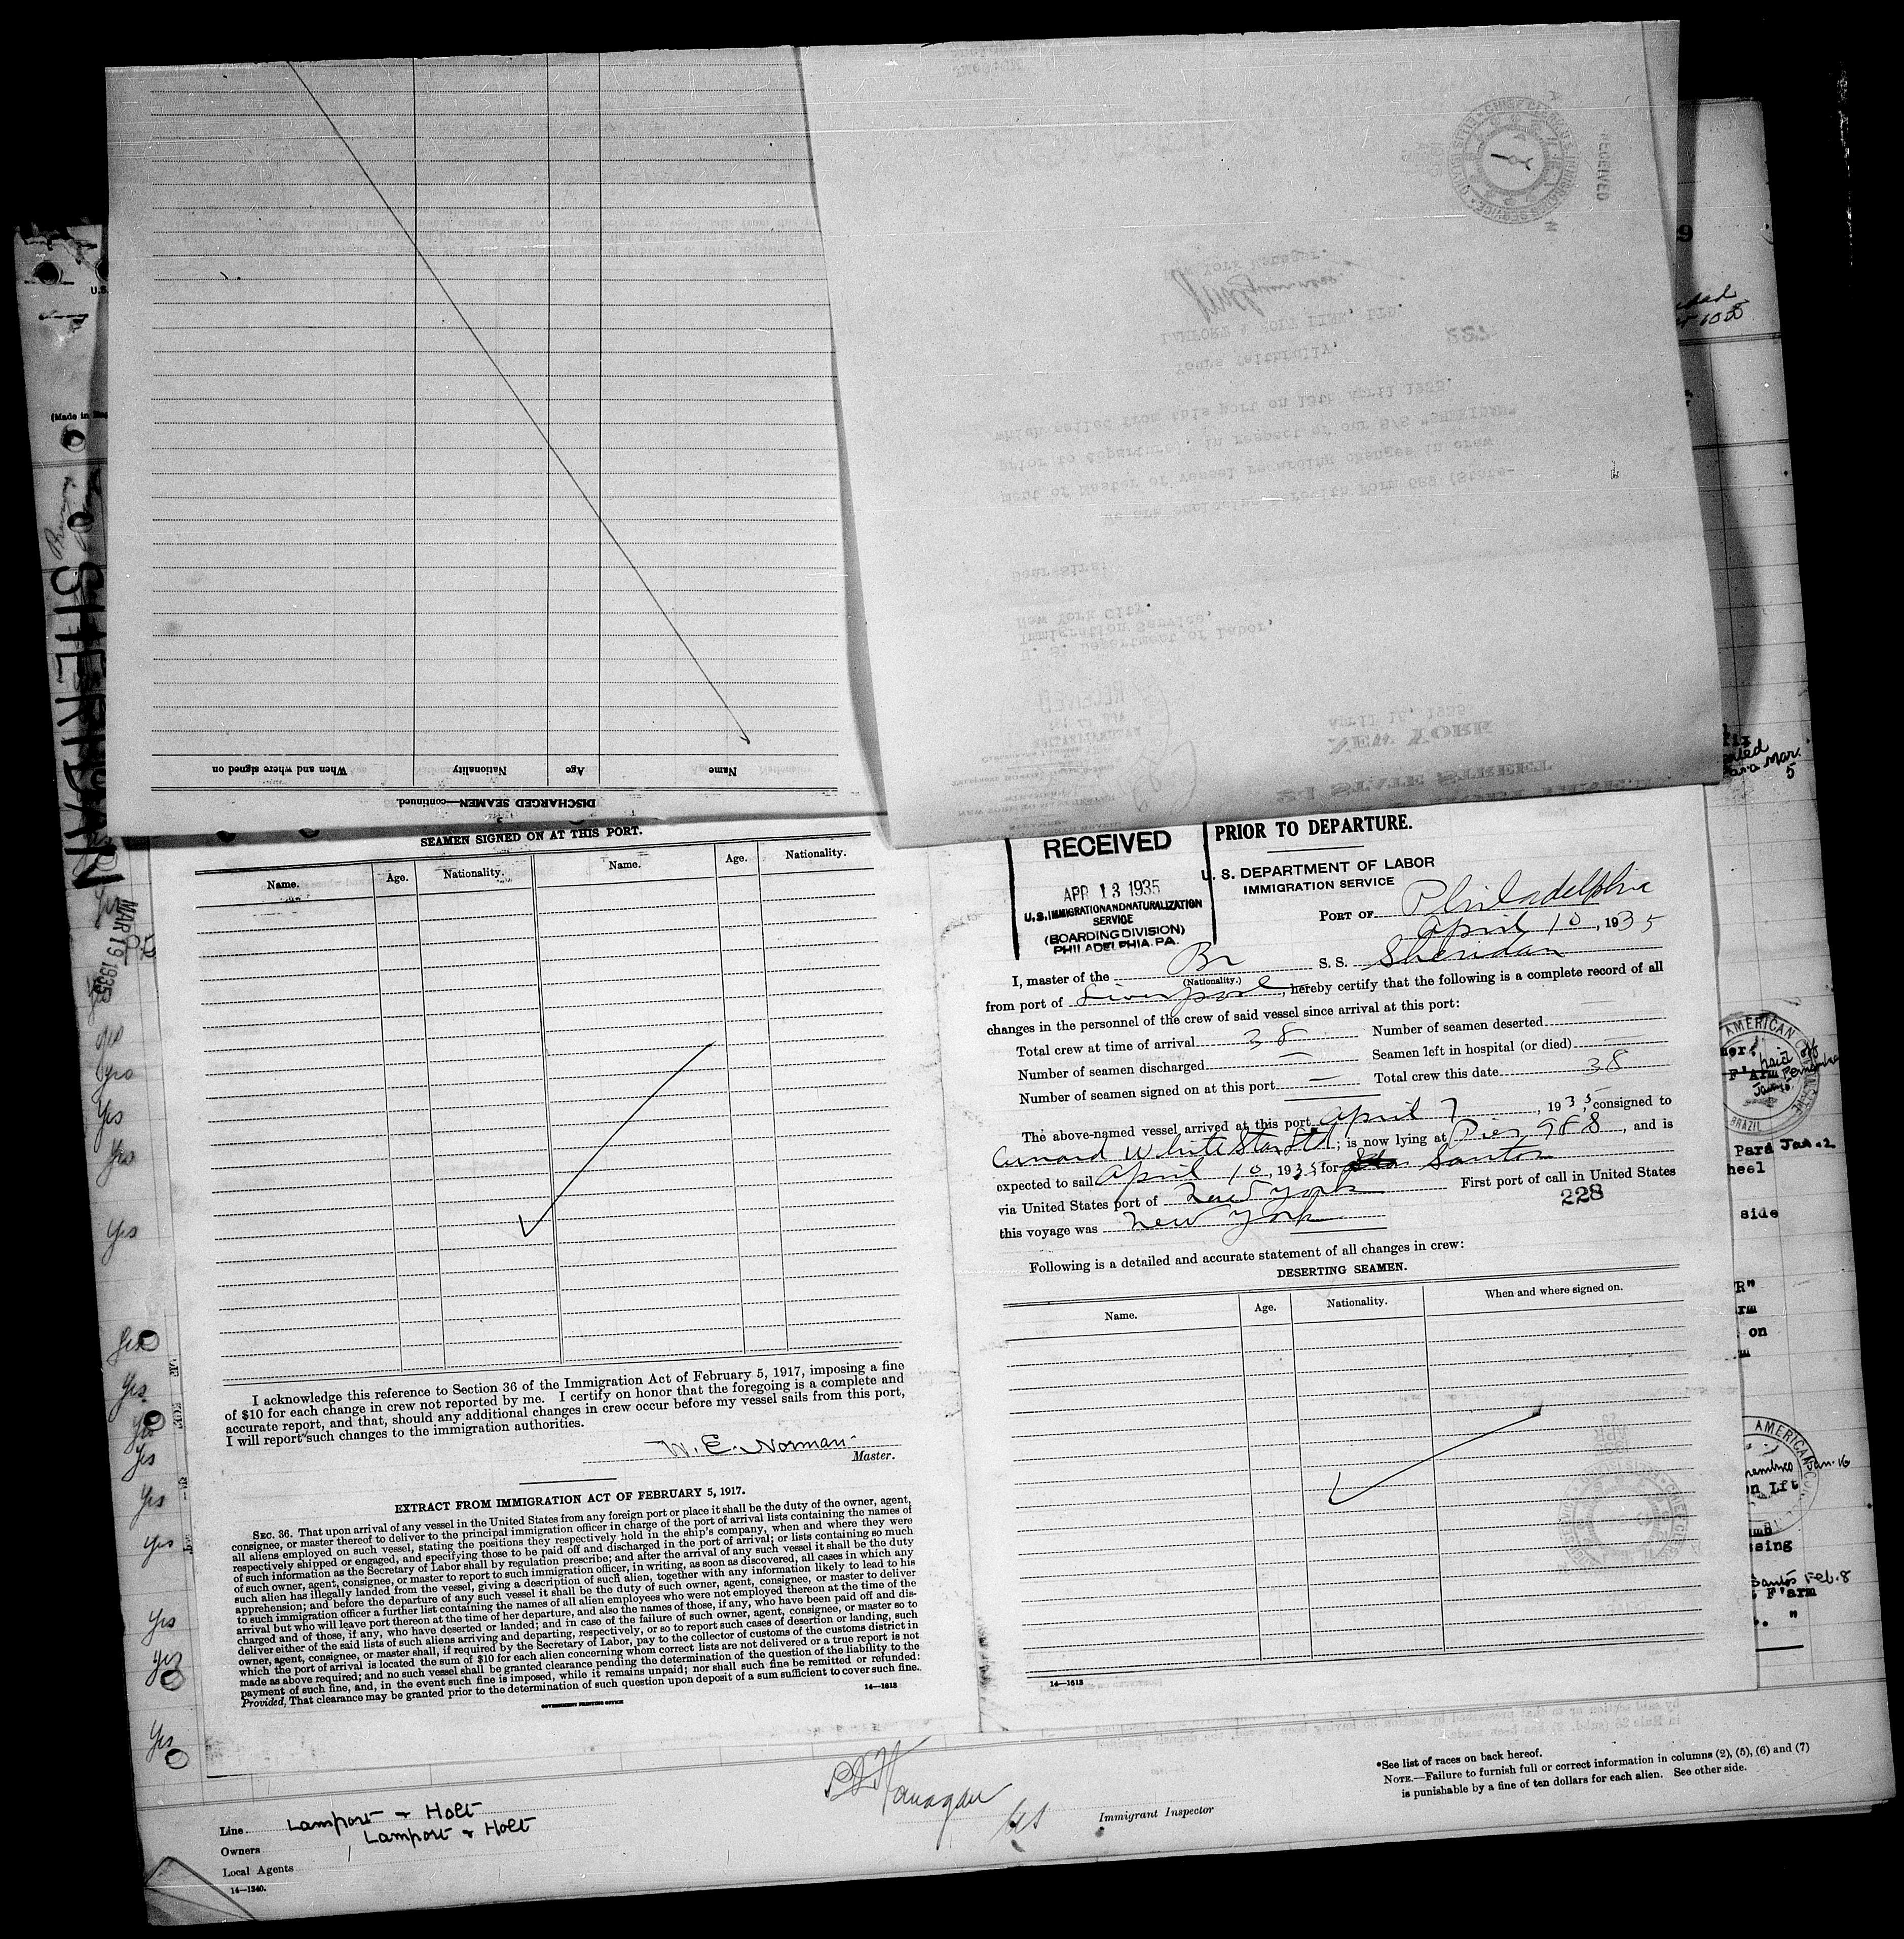 DISCHARGED SEAMEN—continued.
Name
Age
Nationality
When and where signed on
RECEIVED
Yours faithfully,
LAMPORT & HOLT LINE, LTD.
We are enclosing herewith Form 689 (State-
ment of Master of vessel regarding changes in crew
prior to departure, in respect of our S/S "SHERIDAN"
which sailed from this port on 13th April 1935.
Dear Sirs:
U. S. Department of Labor,
Immigration Service,
New York City.
April 16, 1935
NEW YORK
SHERIDAN
MAR 19 1935
SEAMEN SIGNED ON AT THIS PORT.
Name. Age. Nationality. Name. Age. Nationality.
I acknowledge this reference to Section 36 of the Immigration Act of February 5, 1917, imposing a fine
of $10 for each change in crew not reported by me. I certify on honor that the foregoing is a complete and
accurate report, and that, should any additional changes in crew occur before my vessel sails from this port,
I will report such changes to the immigration authorities.
W. E. Norman
Master.
EXTRACT FROM IMMIGRATION ACT OF FEBRUARY 5, 1917.
SEC. 36. That upon arrival of any vessel in the United States from any foreign port or place it shall be the duty of the owner, agent,
consignee, or master thereof to deliver to the principal immigration officer in charge of the port of arrival lists containing the names of
all aliens employed on such vessel, stating the positions they respectively hold in the ship's company, when and where they were
respectively shipped or engaged, and specifying those to be paid off and discharged in the port of arrival; or lists containing so much
of such information as the Secretary of Labor shall by regulation prescribe; and after the arrival of any such vessel it shall be the duty
of such owner, agent, consignee, or master to report to such immigration officer, in writing, as soon as discovered, all cases in which any
such alien has illegally landed from the vessel, giving a description of such alien, together with any information likely to lead to his
apprehension; and before the departure of any such vessel it shall be the duty of such owner, agent, consignee, or master to deliver
to such immigration officer a further list containing the names of all alien employees who were not employed thereon at the time of the
arrival but who will leave port thereon at the time of her departure, and also the names of those, if any, who have been paid off and dis-
charged and of those, if any, who have deserted or landed; and in case of the failure of such owner, agent, consignee, or master so to
deliver either of the said lists of such aliens arriving and departing, respectively, or so to report such cases of desertion or landing, such
owner, agent, consignee, or master shall, if required by the Secretary of Labor, pay to the collector of customs of the customs district in
which the port of arrival is located the sum of $10 for each alien concerning whom correct lists are not delivered or a true report is not
made as above required; and no such vessel shall be granted clearance pending the determination of the question of the liability to the
payment of such fine, and, in the event such fine is imposed, while it remains unpaid; nor shall such fine be remitted or refunded:
Provided, That clearance may be granted prior to the determination of such question upon deposit of a sum sufficient to cover such fine.
GOVERNMENT PRINTING OFFICE
14—1613
PRIOR TO DEPARTURE.
RECEIVED
APR 13 1935
U.S. IMMIGRATION AND NATURALIZATION
SERVICE
(BOARDING DIVISION)
PHILADELPHIA. PA.
U. S. DEPARTMENT OF LABOR
IMMIGRATION SERVICE
PORT OF Philadelphia
April 10, 1935
I, master of the Br S. S. Sheridan
(Nationality.)
from port of Liverpool, hereby certify that the following is a complete record of all
changes in the personnel of the crew of said vessel since arrival at this port:
Total crew at time of arrival 38 Number of seamen deserted —
Number of seamen discharged — Seamen left in hospital (or died) —
Number of seamen signed on at this port — Total crew this date 38
The above-named vessel arrived at this port April 7, 1935, consigned to
Cunard White Star Ltd; is now lying at Pier 98 S, and is
expected to sail April 10, 1935 for Santos
via United States port of New York First port of call in United States
this voyage was New York
228
Following is a detailed and accurate statement of all changes in crew:
DESERTING SEAMEN.
Name. Age. Nationality. When and where signed on.
14—1613
Yes
Yes
Yes
Yes
Yes
Yes
Yes
Yes
AMERICAN
BRAZIL
Para Jan. 2
side
on
AMERICAN
Jan. 16
Santos Feb. 8
F'arm
*See list of races on back hereof.
NOTE.—Failure to furnish full or correct information in columns (2), (5), (6) and (7)
is punishable by a fine of ten dollars for each alien. See other side.
Flanagan
Immigrant Inspector
Line Lamport & Holt
Owners Lamport & Holt
Local Agents
14—1240.